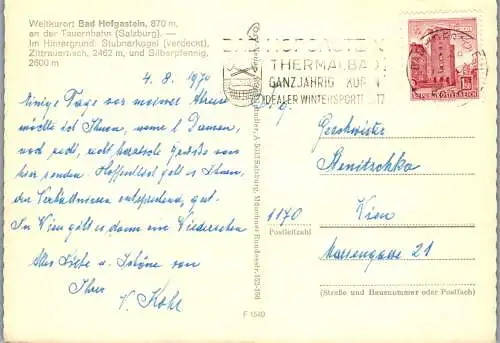 Weltkurort Bad Hofgastein, 870 m,
an der Tauernbahn (Salzburg). —
Im Hintergrund: Stubnerkogel (verdeckt),
Zittrauertisch, 2462 m, und Silberpfennig,
2600 m
4. 8. 1970
Einige Tage vor meiner Abreise
möchte ich Ihnen, werte l. Damen,
noch recht, recht herzliche Grüße von
hier senden. Hoffentlich geht es Ihnen,
den Verhältnissen entsprechend, gut.
In Wien gibt es dann ein Wiedersehen
Alles Liebe u. Schöne von
Ihrer
BAD HOFGASTEIN
THERMALBAD
GANZJÄHRIG KUREN
IDEALER WINTERSPORTPLATZ
REPUBLIK ÖSTERREICH
Geschwister
1170 Wien
Postleitzahl
21
(Straße und Hausnummer oder Postfach)
F 1540